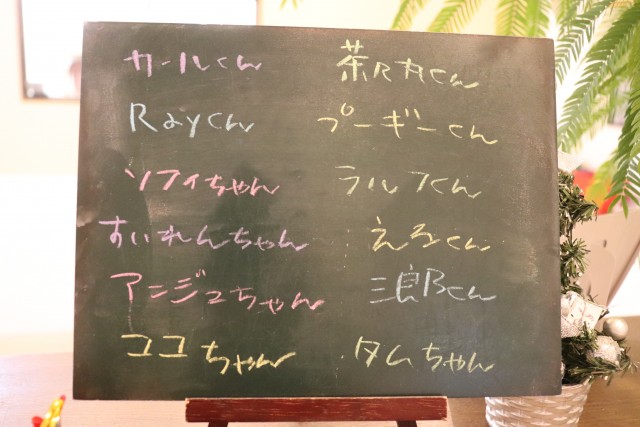 カールくん
Rayくん
ソフィちゃん
すいれんちゃん
アンジュちゃん
ココちゃん
茶々丸くん
プーギーくん
ラルフくん
えるくん
三郎くん
タムちゃん